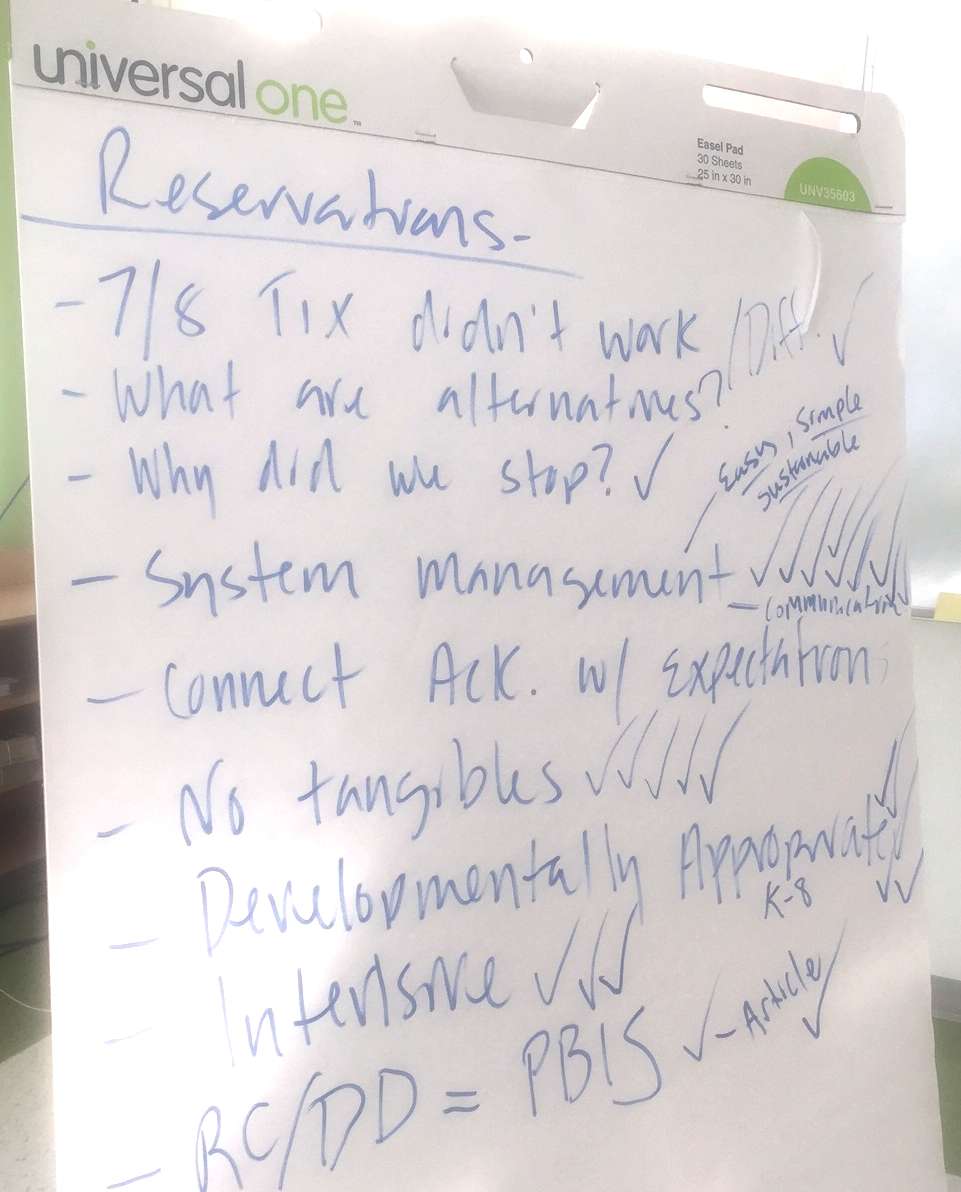 universal one™
Easel Pad
30 Sheets
25 in x 30 in
UNV35603
Reservations-
- 7/8 Tix didn't work /Diff. ✓
- What are alternatives?
- Why did we stop? ✓
Easy, Simple
Sustainable
- System management ✓✓✓✓✓✓✓✓
- Communication
- Connect Ack. w/ Expectations
- No tangibles ✓✓✓✓✓
- Developmentally Appropriate ✓✓✓✓
K-8
- Intensive ✓✓✓
- RC/DD = PBIS ✓ - Article ✓